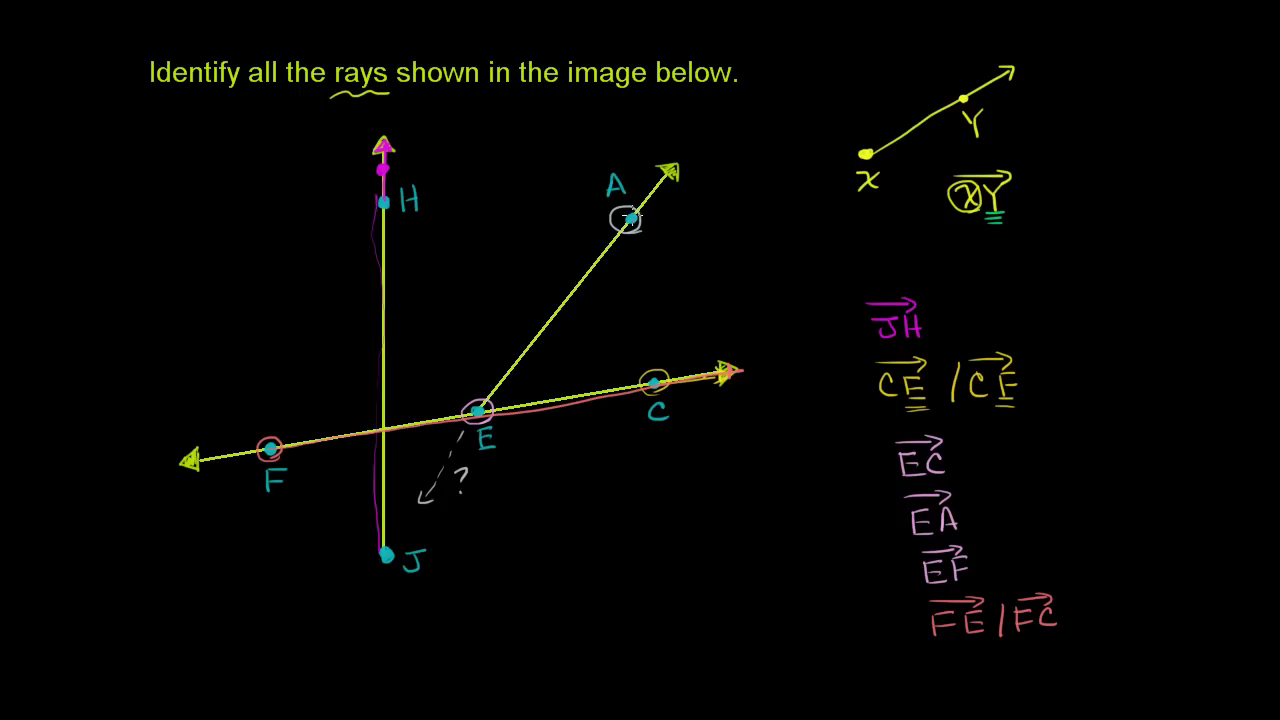 Identify all the rays shown in the image below.
X
Y
XY
H
A
C
E
F
?
J
JH
CE / CF
EC
EA
EF
FE / FC